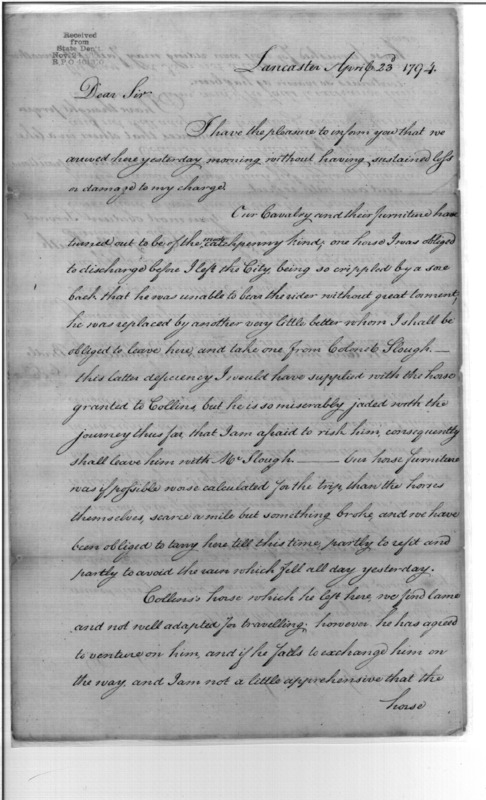 Received
from
State Dept.
Lancaster April 23d 1794.
Dear Sir
I have the pleasure to inform you that we
arrived here yesterday morning without having sustained loss
or damage to my charge.
Our Cavalry and their furniture have
turned out to be of the catchpenny kind; one horse I was obliged
to discharge before I left the City, being so crippled by a sore
back that he was unable to bear the rider without great torment;
he was replaced by another very little better whom I shall be
obliged to leave here, and take one from Colonel Slough. —
this latter deficiency I would have supplied with the horse
granted to Collins, but he is so miserably jaded with the
journey thus far that I am afraid to risk him, consequently
shall leave him with Mr Slough. — Our horse furniture
was if possible worse calculated for the trip, than the horses
themselves, scarce a mile but something broke, and we have
been obliged to tarry here till this time, partly to refit and
partly to avoid the rain which fell all day yesterday.
Collins's horse which he left here, we find lame
and not well adapted for travelling; however he has agreed
to venture on him, and if he fails to exchange him on
the way, and I am not a little apprehensive that the
horse